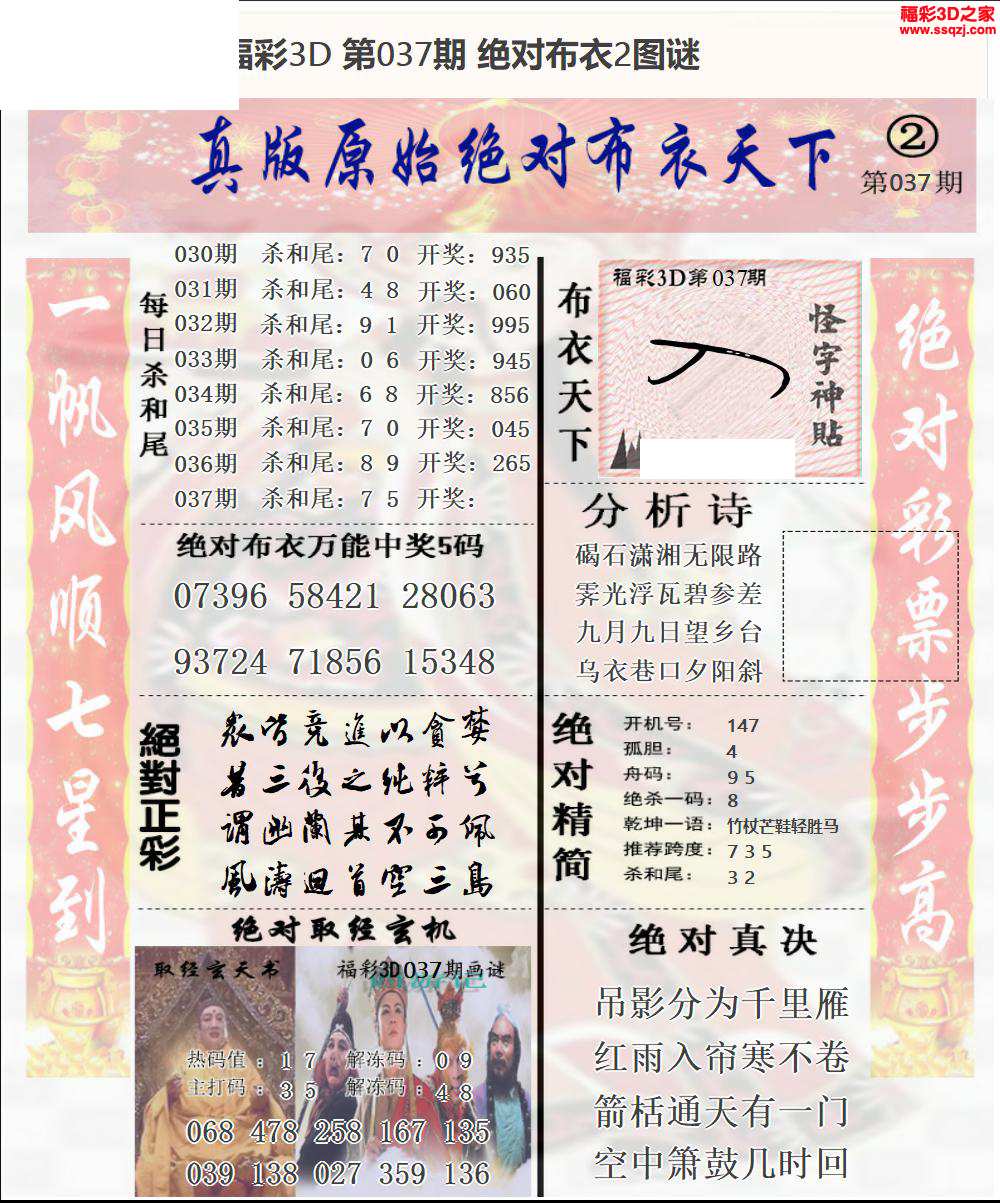 福彩3D之家
www.ssqzj.com
福彩3D 第037期 绝对布衣2图谜
真版原始绝对布衣天下
②
第037期
一帆风顺七星到
每日杀和尾
030期 杀和尾：7 0 开奖：935
031期 杀和尾：4 8 开奖：060
032期 杀和尾：9 1 开奖：995
033期 杀和尾：0 6 开奖：945
034期 杀和尾：6 8 开奖：856
035期 杀和尾：7 0 开奖：045
036期 杀和尾：8 9 开奖：265
037期 杀和尾：7 5 开奖：
绝对布衣万能中奖5码
07396 58421 28063
93724 71856 15348
絕對正彩
衆皆竞進以貪婪
昔三後之纯粹兮
谓幽蘭其不可佩
風濤迴首空三島
绝对取经玄机
取经玄天书
福彩3D037期画谜
热码值：1 7 解冻码：0 9
主打码：3 5 解冻码：4 8
068 478 258 167 135
039 138 027 359 136
布衣天下
福彩3D第037期
怪字神貼
分析诗
碣石潇湘无限路
霁光浮瓦碧参差
九月九日望乡台
乌衣巷口夕阳斜
绝对精简
开机号：147
孤胆：4
舟码：9 5
绝杀一码：8
乾坤一语：竹杖芒鞋轻胜马
推荐跨度：7 3 5
杀和尾：3 2
绝对真决
吊影分为千里雁
红雨入帘寒不卷
箭栝通天有一门
空中箫鼓几时回
绝对彩票步步高